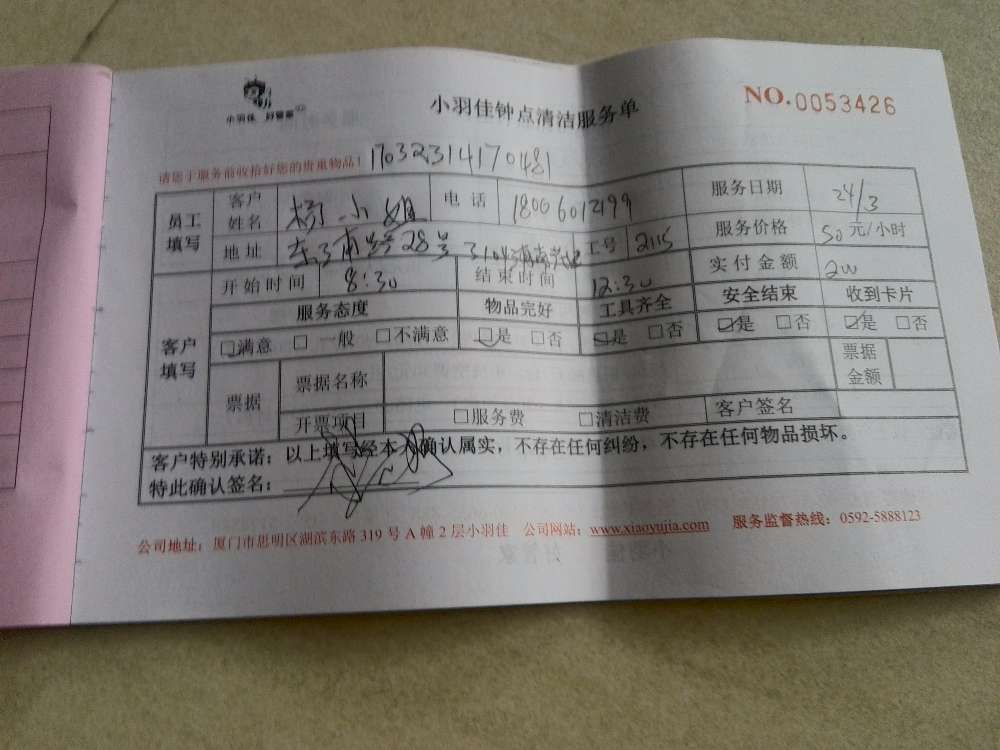 小羽佳 好管家
小羽佳钟点清洁服务单
NO.0053426
请您于服务前收拾好您的贵重物品! 17032314170481
员工填写 客户姓名 杨小姐 电话 18006012199 服务日期 24/3
地址 28号 工号 2115 服务价格 50元/小时
开始时间 8:30 结束时间 12:30 实付金额 200
客户填写 服务态度 物品完好 工具齐全 安全结束 收到卡片
☑满意 □ 一般 □不满意 ☑是 □否 ☑是 □否 ☑是 □否 ☑是 □否
票据 票据名称 票据金额
开票项目 □服务费 □清洁费 客户签名
客户特别承诺:以上填写经本人确认属实,不存在任何纠纷,不存在任何物品损坏。
特此确认签名:
公司地址:厦门市思明区湖滨东路 319 号 A 幢 2 层小羽佳 公司网站:www.xiaoyujia.com 服务监督热线:0592-5888123